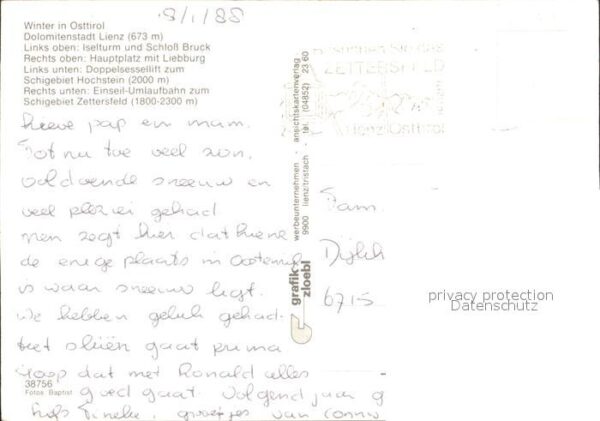 18/1/88
Winter in Osttirol
Dolomitenstadt Lienz (673 m)
Links oben: Iselturm und Schloß Bruck
Rechts oben: Hauptplatz mit Liebburg
Links unten: Doppelsessellift zum
Schigebiet Hochstein (2000 m)
Rechts unten: Einseil-Umlaufbahn zum
Schigebiet Zettersfeld (1800-2300 m)
lieve pap en mam.
Tot nu toe veel zon,
voldoende sneeuw en
veel plezier gehad
men zegt hier dat Lienz
de enige plaats in Oostenrijk
is waar sneeuw ligt.
We hebben geluk gehad.
het skiën gaat prima
Hoop dat met Ronald alles
goed gaat. Volgend jaar
groetjes van
38756
Fotos: Baptist
werbeunternehmen ansichtskartenverlag
9900 lienz/tristach tel. (04852) 23 60
grafik
zloebl
ZETTERSFELD
Lienz Osttirol
Fam.
6715
privacy protection
Datenschutz